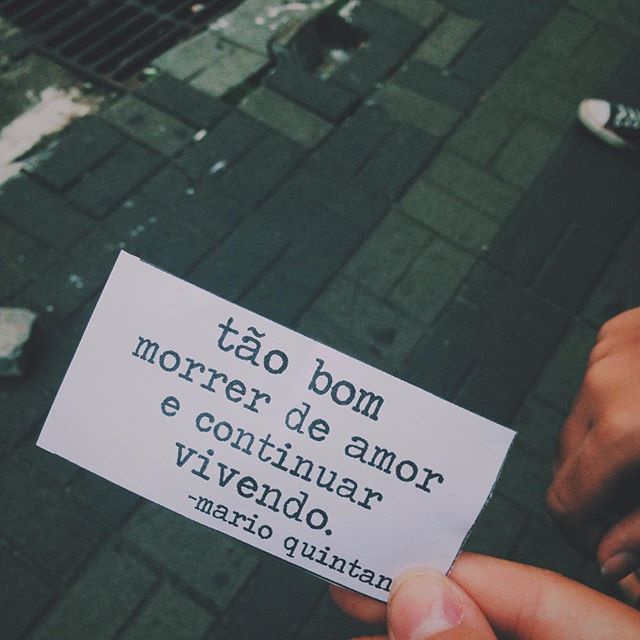 tão bom
morrer de amor
e continuar
vivendo.
-mario quintan